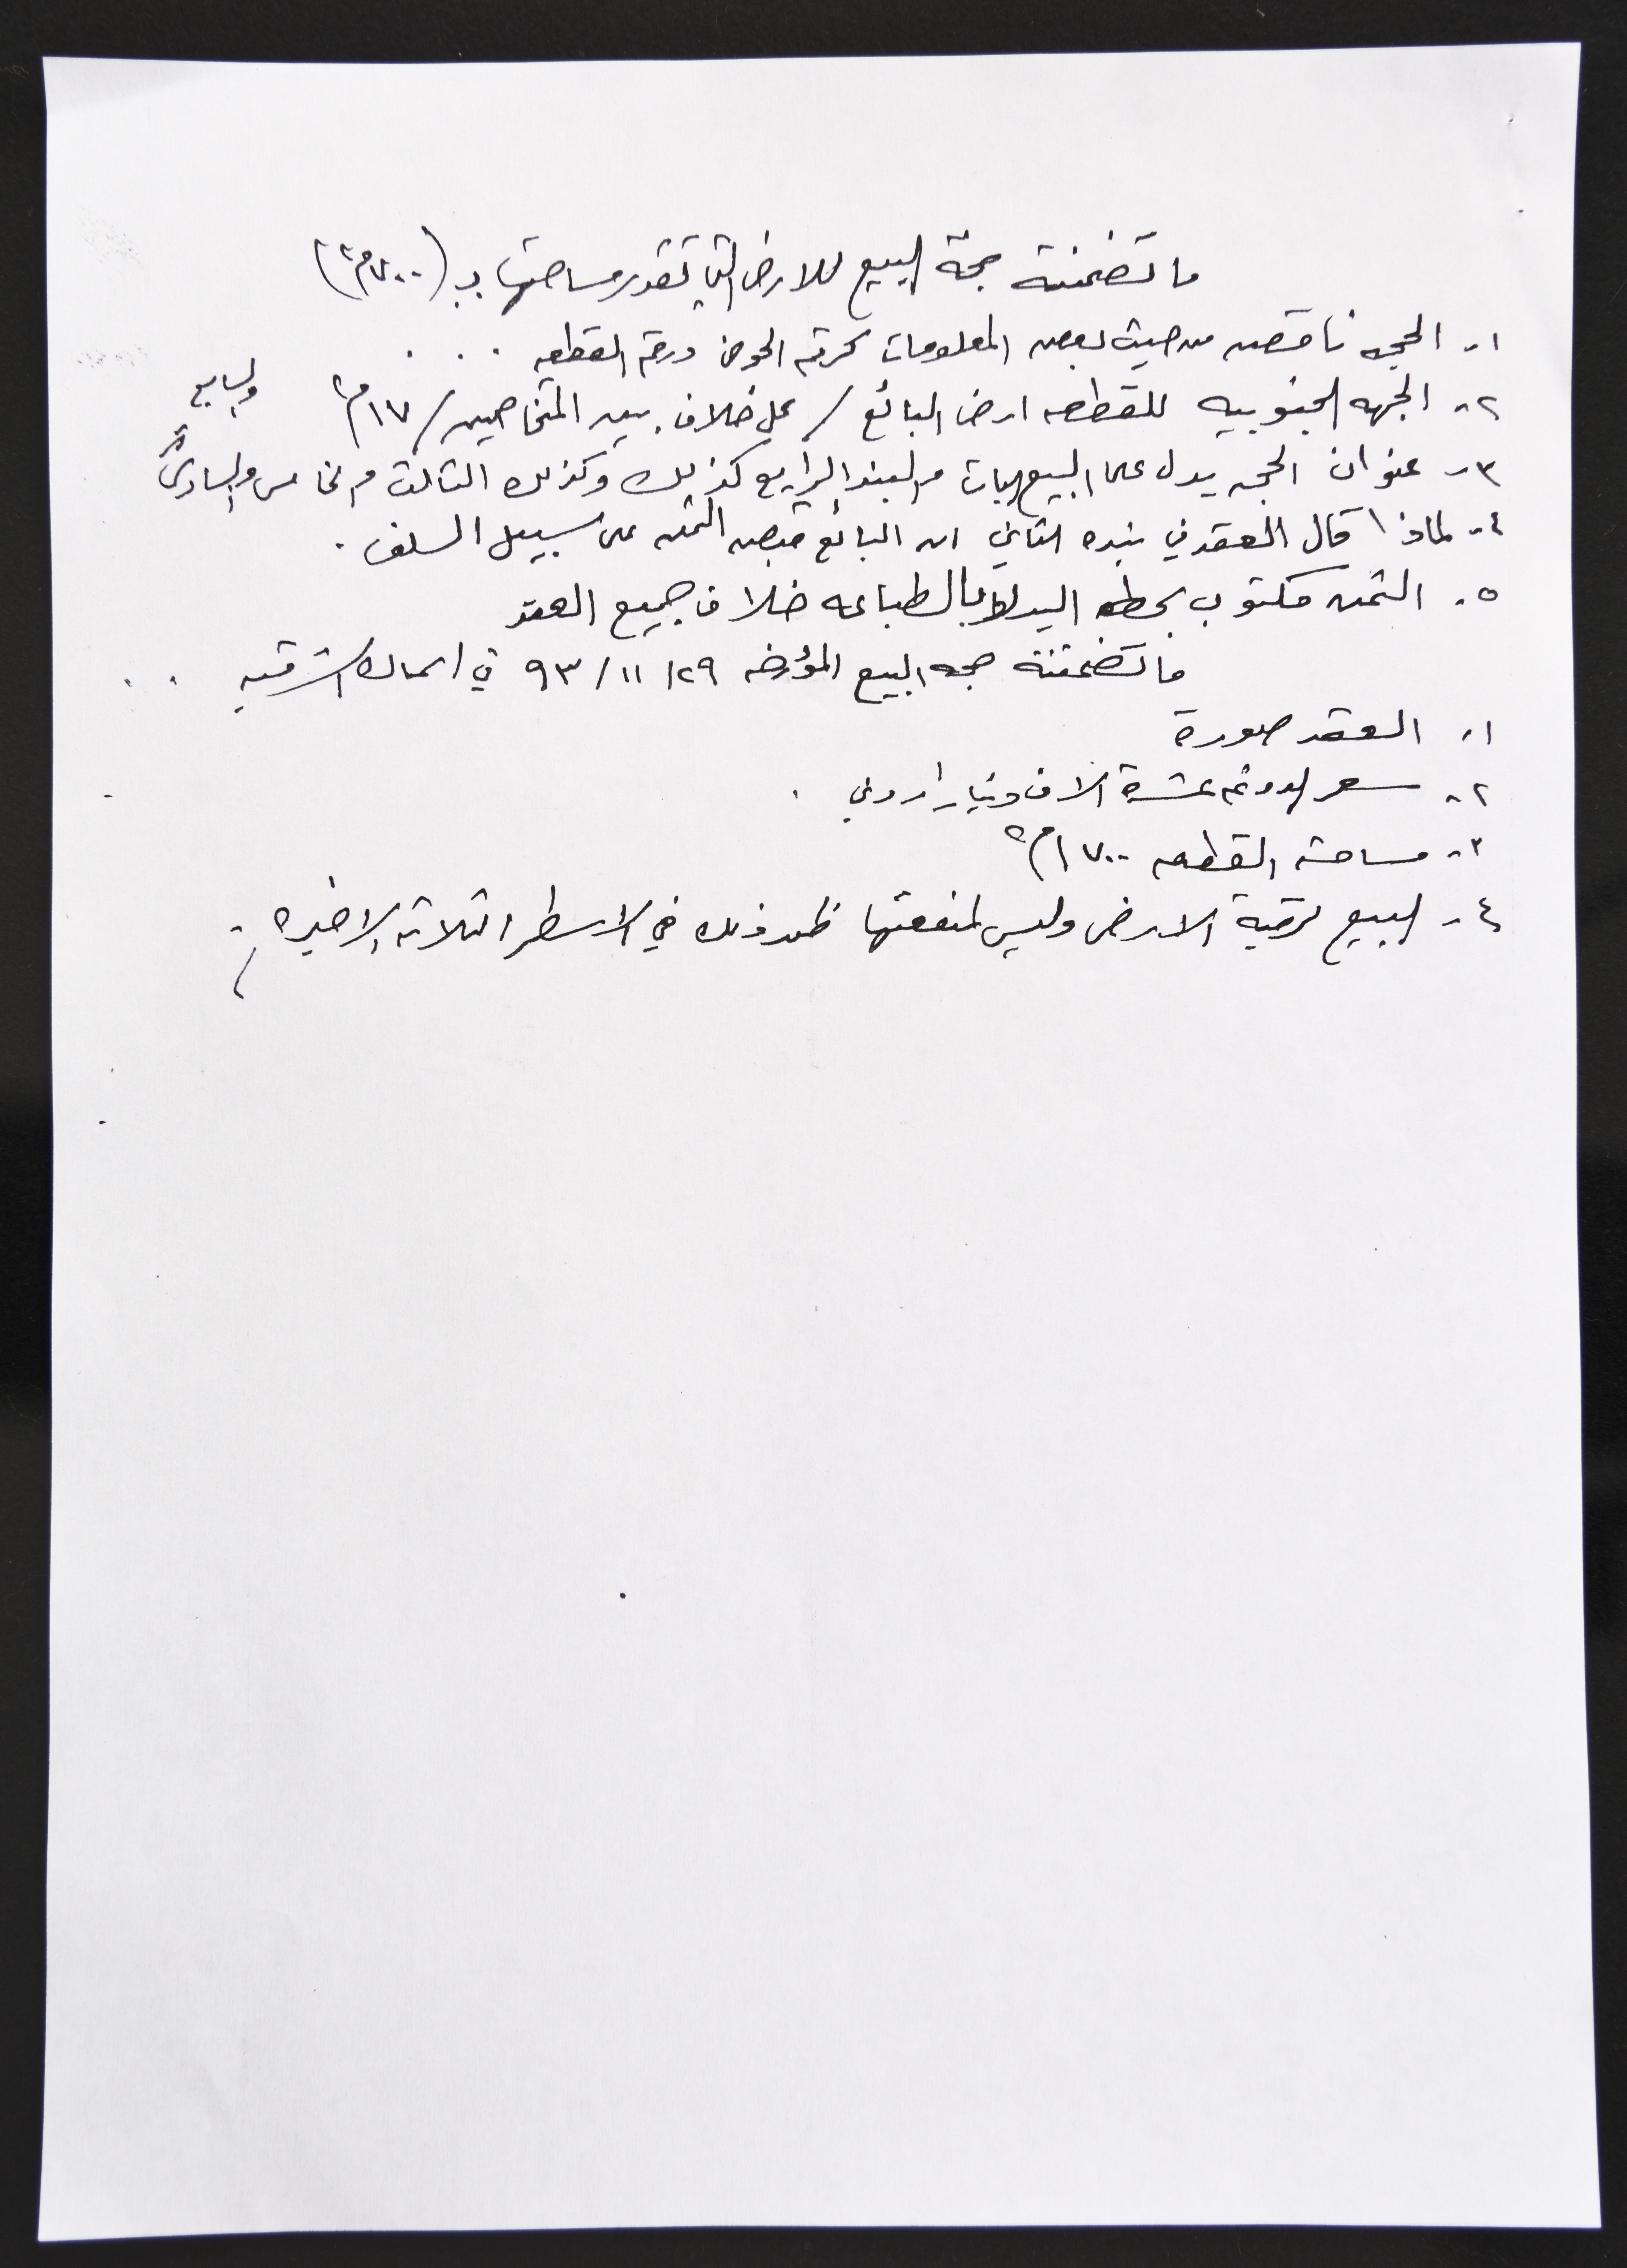 ما تضمنته حجة البيع للارض التي تقدر مساحتها ب (٧٠٠م٢)
١- الحجه ناقصه من حيث بعض المعلومات كرقم الحوض ورقم القطعه . . .
٢- الجهه الجنوبيه للقطعه ارض البائع / على خلاف بين المتخاصمين / ١٧م٢
والسابع
٣- عنوان الحجه يدل على البيع البات والبند الرابع كذلك وكذلك الثالث والخامس والسادس
٤- لماذا قال العقد في بنده الثاني ان البائع قبض الثمن على سبيل السلف .
٥- الثمن مكتوب بخط اليد لا بالطباعه خلاف جميع العقد
ما تضمنته حجه البيع المؤرخه ٢٩/ ١١/ ٩٣ في الشرقيه . .
١- العقد صورة
٢- سعر الدونم عشرة الاف دينار اردني .
٣- مساحة القطعه ١٧٠٠م٢
٤- البيع لرقبة الارض وليس لمنفعتها ظهر ذلك في الاسطر الثلاثه الاخيره .